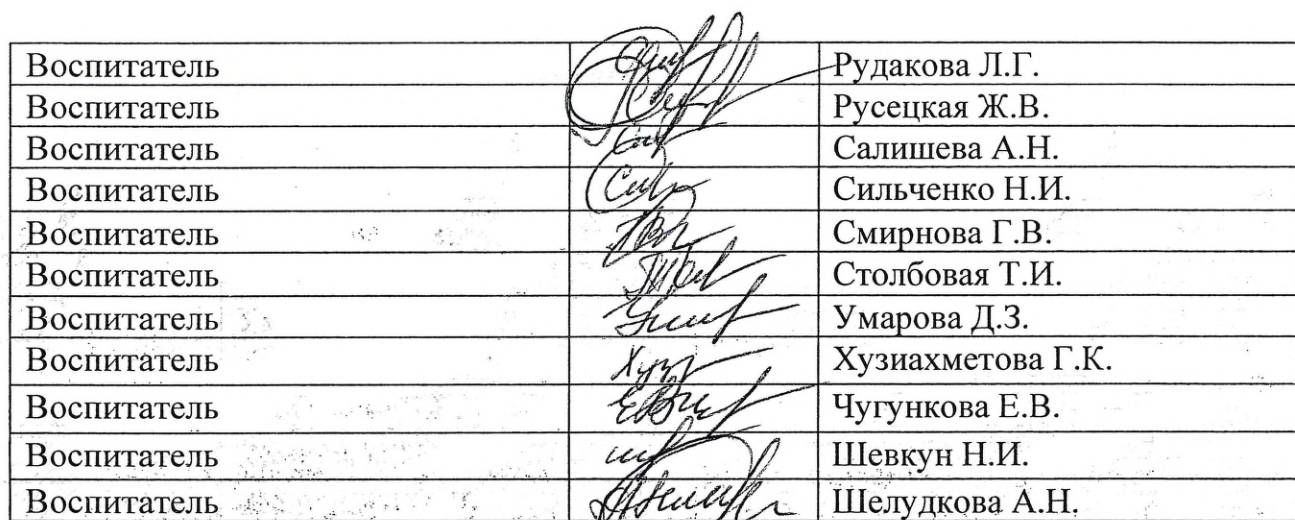 Воспитатель Рудакова Л.Г.
Воспитатель Русецкая Ж.В.
Воспитатель Салишева А.Н.
Воспитатель Сильченко Н.И.
Воспитатель Смирнова Г.В.
Воспитатель Столбовая Т.И.
Воспитатель Умарова Д.З.
Воспитатель Хузиахметова Г.К.
Воспитатель Чугункова Е.В.
Воспитатель Шевкун Н.И.
Воспитатель Шелудкова А.Н.